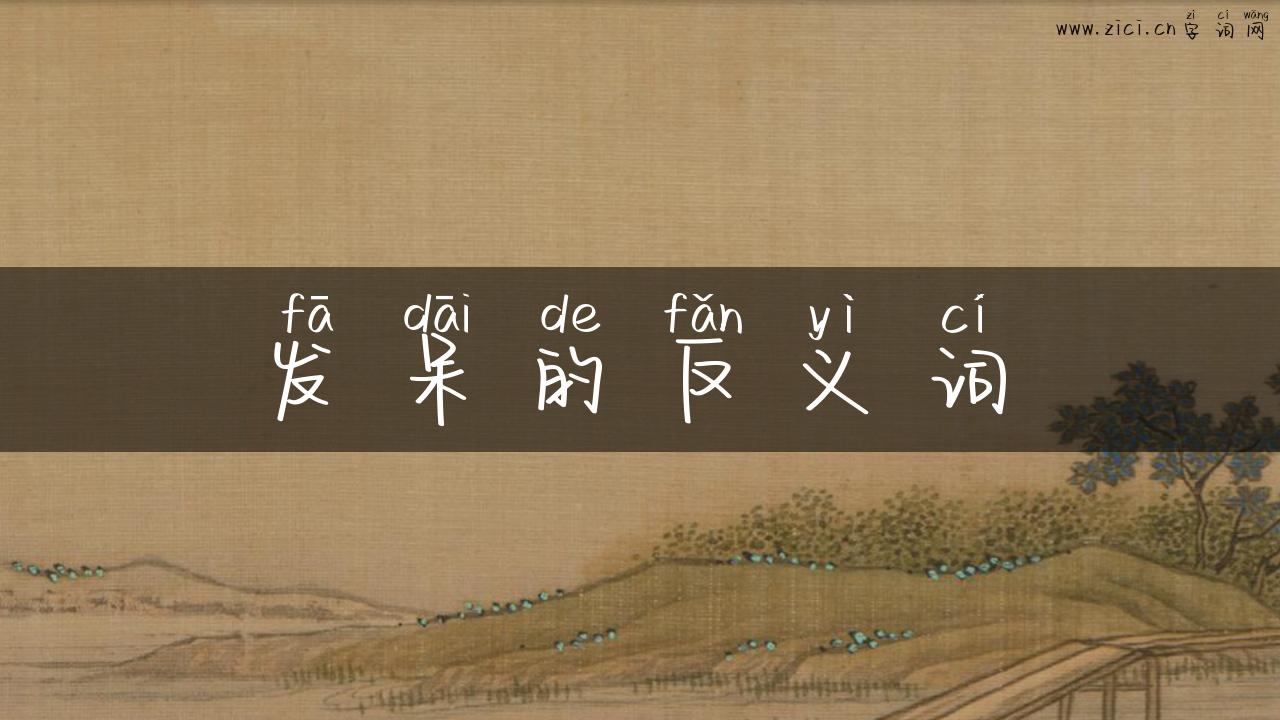 zì cí wǎng
www.zici.cn字词网
fā dāi de fǎn yì cí
发呆的反义词